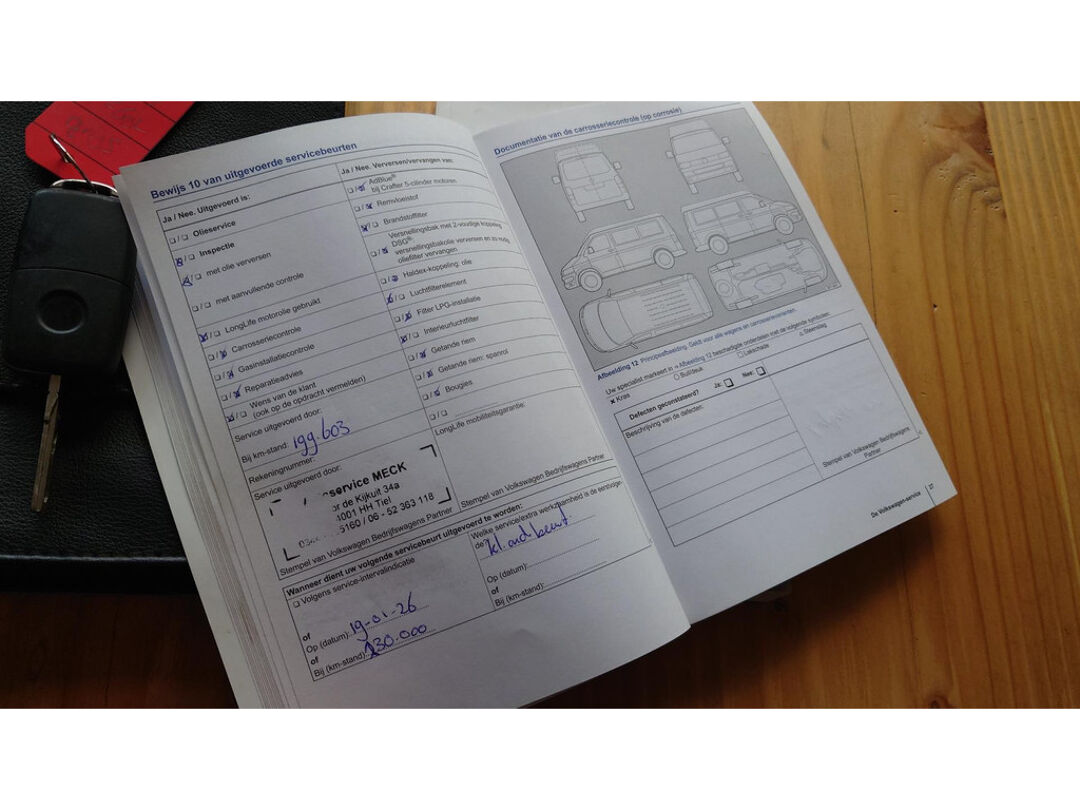 Bewijs 10 van uitgevoerde servicebeurten
Ja / Nee. Uitgevoerd is:
❏ / ❏ Olieservice
☒ / ❏ Inspectie
☒ / ❏ met olie verversen
❏ / ❏ met aanvullende controle
☒ / ❏ LongLife motorolie gebruikt
❏ / ☒ Carrosseriecontrole
❏ / ☒ Gasinstallatiecontrole
❏ / ☒ Reparatieadvies
☒ / ❏ Wens van de klant
(ook op de opdracht vermelden)
Service uitgevoerd door:
Bij km-stand: 199.603
Rekeningnummer:
Service uitgevoerd door:
service MECK
or de Kijkuit 34a
4001 HH Tiel
5160 / 06 - 52 363 118
Stempel van Volkswagen Bedrijfswagens Partner
Ja / Nee. Verversen/vervangen van:
❏ / ☒ AdBlue®
bij Crafter 5-cilinder motoren
❏ / ☒ Remvloeistof
☒ / ❏ Brandstoffilter
❏ / ☒ Versnellingsbak met 2-voudige koppeling
DSG®:
versnellingsbakolie verversen en zo nodig
oliefilter vervangen
❏ / ☒ Haldex-koppeling: olie
☒ / ❏ Luchtfilterelement
❏ / ☒ Filter LPG-installatie
☒ / ❏ Interieurluchtfilter
❏ / ☒ Getande riem
❏ / ☒ Getande riem: spanrol
❏ / ☒ Bougies
❏ / ❏
LongLife mobiliteitsgarantie:
Stempel van Volkswagen Bedrijfswagens Partner
Wanneer dient uw volgende servicebeurt uitgevoerd te worden:
❏ Volgens service-intervalindicatie
of
Op (datum): 19-01-26
of
Bij (km-stand): 230.000
Welke service/extra werkzaamheid is de eerstvolgende?
kl. ond beurt
Op (datum):
of
Bij (km-stand):
Documentatie van de carrosseriecontrole (op corrosie)
Afbeelding 12 Principeafbeelding. Geldt voor alle wagens en carrosserievarianten.
Uw specialist markeert in ⇒ Afbeelding 12 beschadigde onderdelen met de volgende symbolen:
✖ Kras ○ Buil/deuk ❏ Lakschade △ Steenslag
Defecten geconstateerd? Ja: ❏ Nee: ❏
Beschrijving van de defecten:
Stempel van Volkswagen Bedrijfswagens
Partner
De Volkswagen-service 27